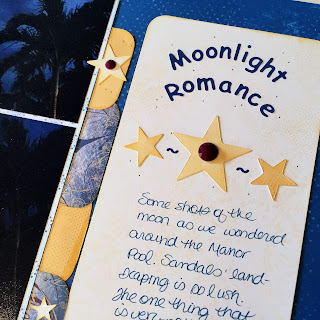 Moonlight
Romance
~ ~
Some shots of the
moon as we wandered
around the Manor
Pool. Sandals' land-
scaping is so lush.
The one thing that
is very